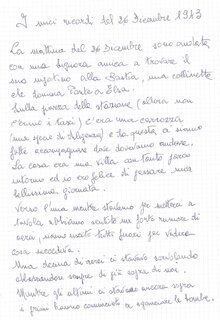 I miei ricordi del 26 Dicembre 1943
La mattina del 26 Dicembre sono andata
con una signora amica a trovare il
suo in alla Bastia, una collinetta
che domina Porto
Sulla piazza della stazione (allora non
c'erano i taxi) c'era una carrozza
(una specie di diligenza) e da questa ci siamo
fatte accompagnare dove dovevamo andare.
La casa era una villa con tanto parco
intorno ed io ero felice di passare una
bellissima giornata.
Verso l'una mentre stavamo per metterci a
tavola abbiamo sentito un forte rumore di
aerei, siamo usciti tutti fuori per vedere
cosa succedeva.
Una decina di aerei ci stavano sorvolando
abbassandosi sempre di più sopra di noi.
Mentre gli ultimi ci stavano ancora sopra
i primi hanno cominciato a sganciare le bombe.